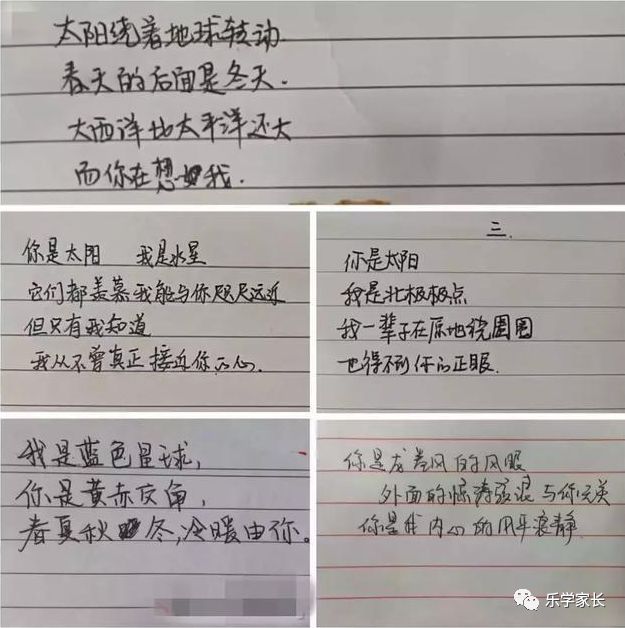 太阳绕着地球转动.
春天的后面是冬天.
大西洋比太平洋还大
而你在想我.
你是太阳 我是水星
它们都羡慕我能与你咫尺远近
但只有我知道
我从不曾真正接近你的心.
三.
你是太阳
我是北极极点
我一辈子在原地绕圈圈
也得不到你的正眼.
我是蓝色星球,
你是黄赤交角,
春夏秋冬,冷暖由你。
你是龙卷风的风眼
外面的惊涛骇浪与你无关
你是我内心的风平浪静.
乐学家长